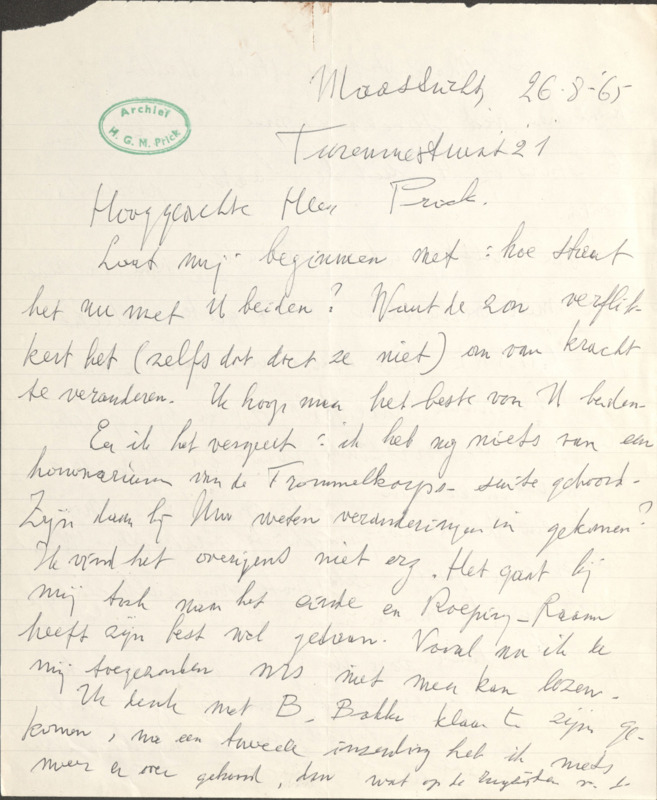 Maastricht, 26-8-'65
Archief
H. G. M. Prick
Turennestraat 21
Hooggeachte Heer Prick.
Laat mij beginnen met : hoe staat
het nu met U beiden? Want de zon verflik-
kert het (zelfs dat doet ze niet) om van kracht
te veranderen. Ik hoop maar het beste van U beiden.
En ik het vergeet : ik heb nog niets van een
honorarium van de Trommelkorps-suite gehoord.
Zijn daar bij Uw weten veranderingen in gekomen?
Ik vind het overigens niet erg. Het gaat bij
mij toch naar het einde en Roeping-Raam
heeft zijn best wel gedaan. Vooral nu ik de
mij toegezonden nrs niet meer kan lezen.
Ik denk met B. Bakker klaar te zijn ge-
komen, na een tweede inzending heb ik niets
meer er over gehoord, dan wat op de